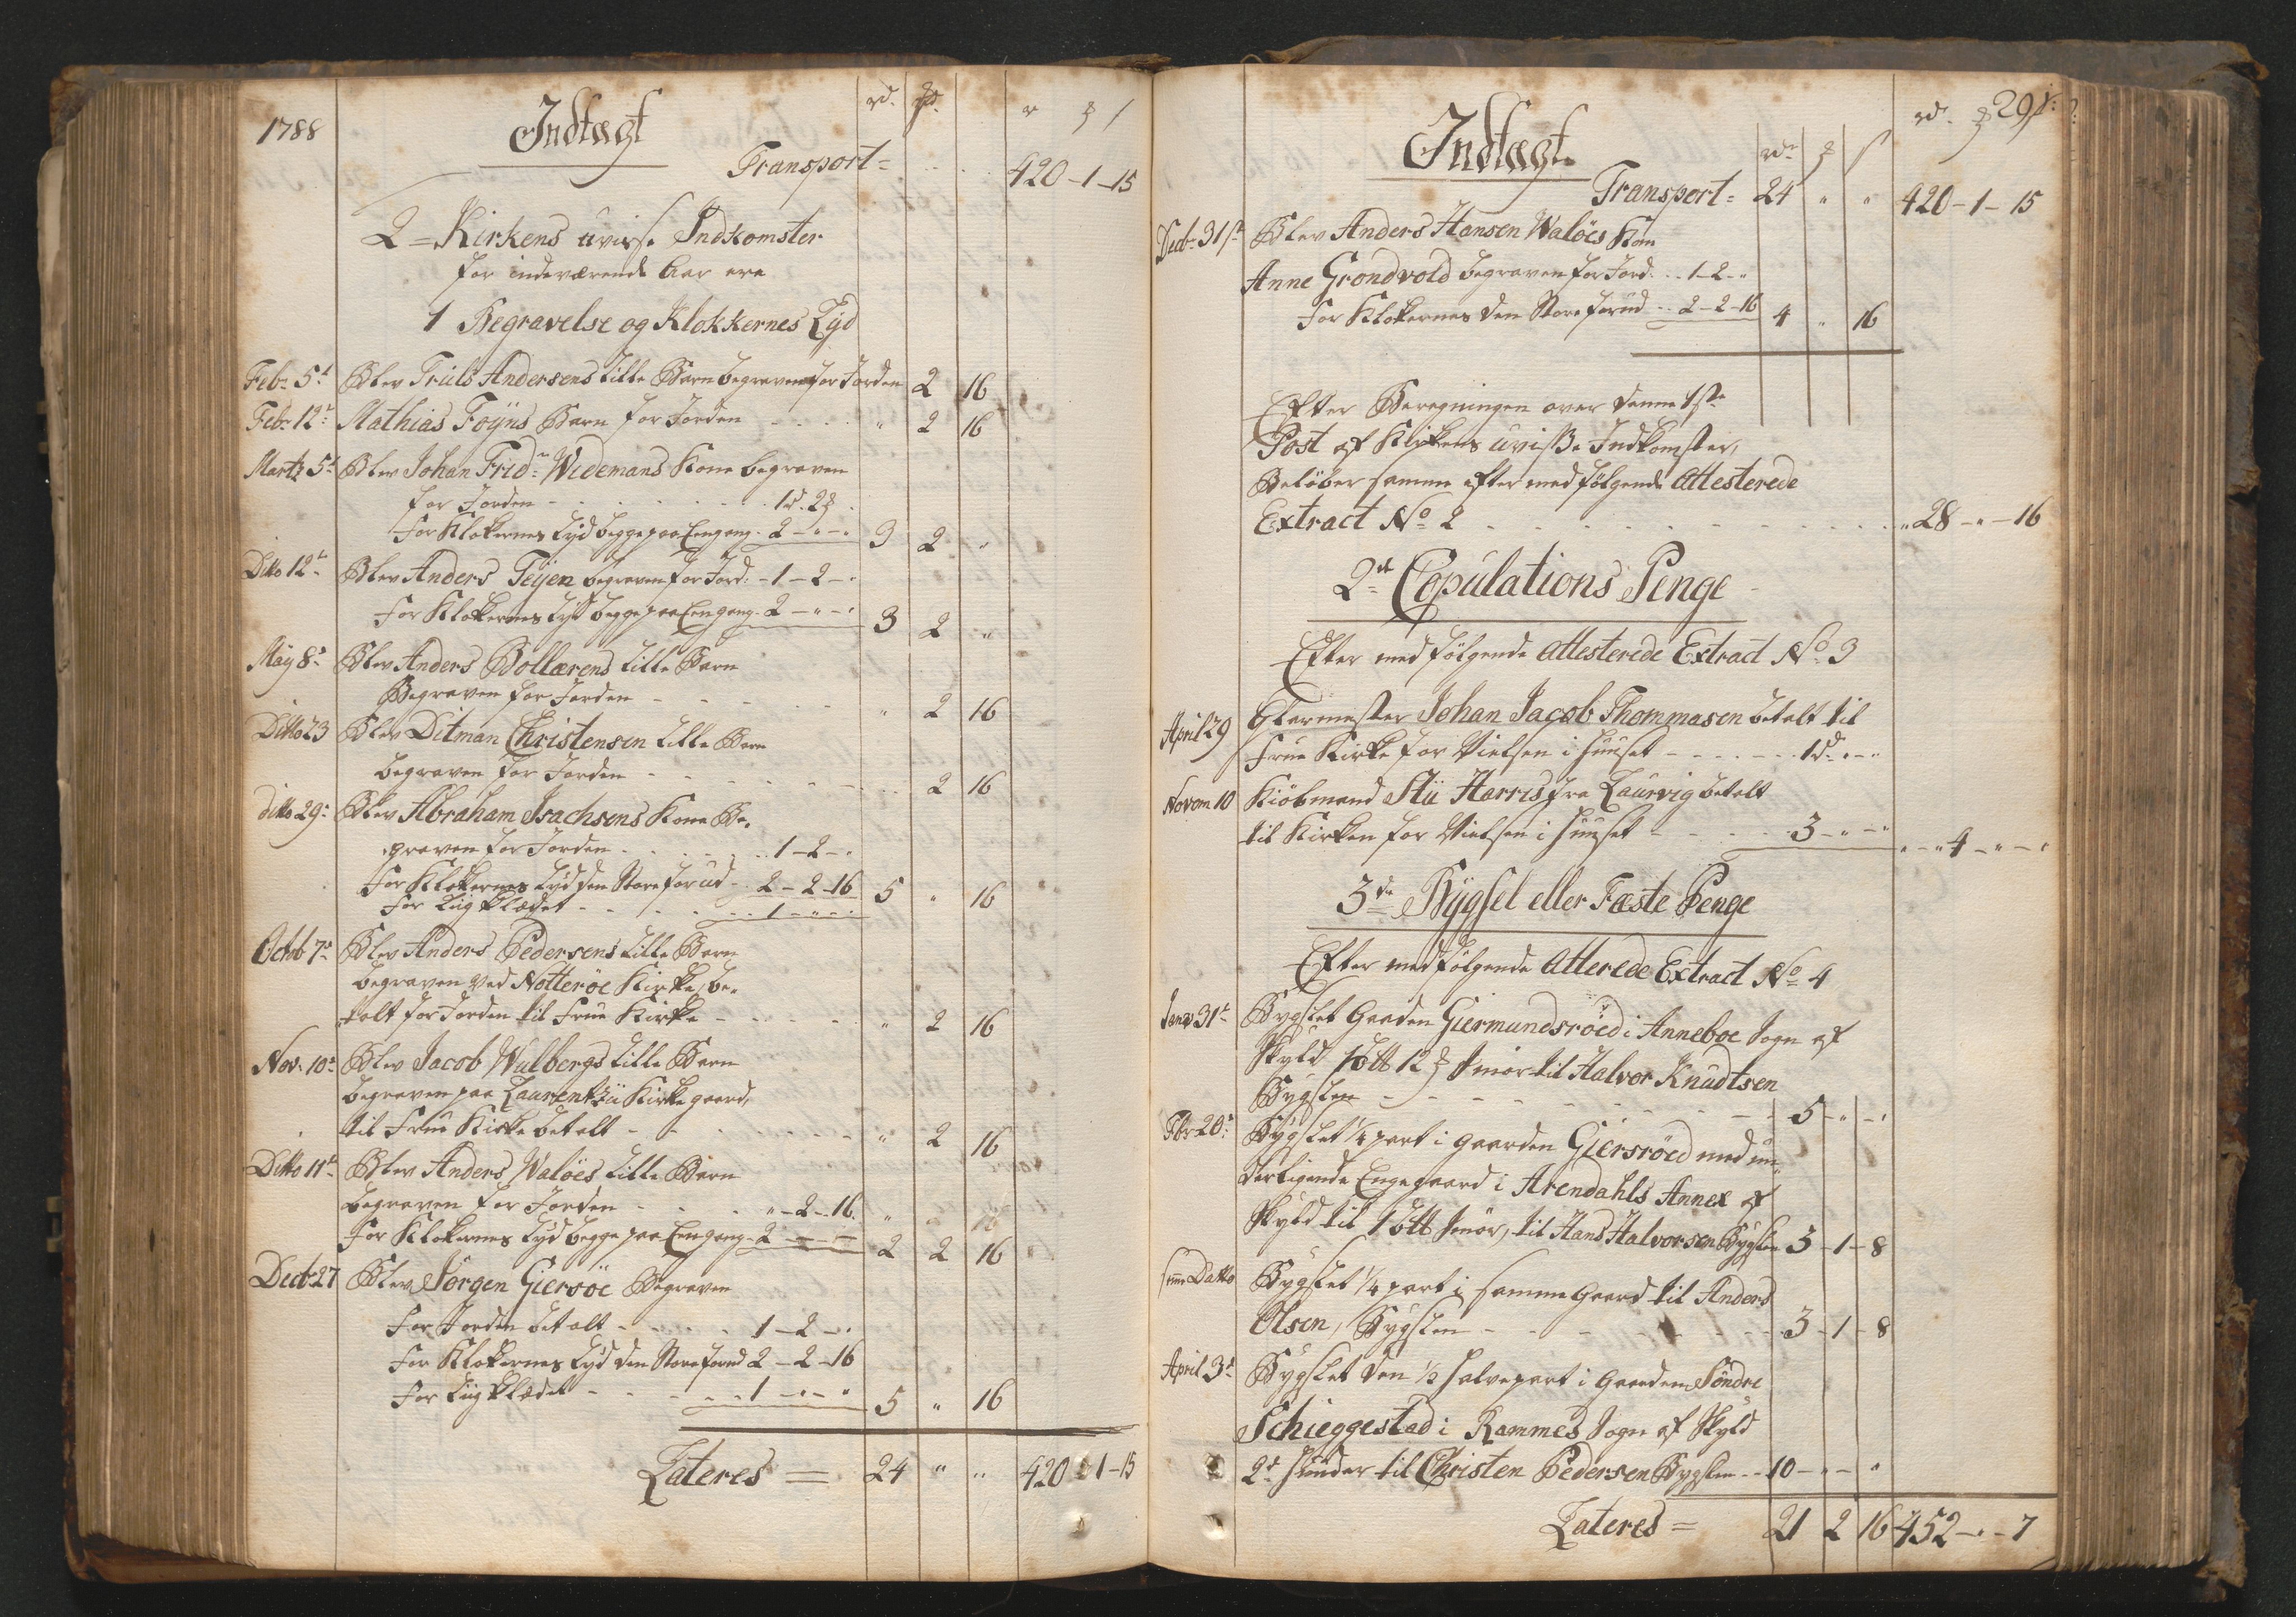 1788
Indtægt
rd. ₰.
r ₰ /
Transport = 420-1-15
2 = Kirkens uvisse Indkomster
for indeværende Aar ere
1 Begravelse og Klokkernes Lyd
Febr. 5t Blev Truls Andersens lille Barn begraven for Jorden 2 16
Febr. 12t Mathias Foÿns Barn for Jorden - - - - " 2 16
Martz 5t Blev Johan Fridr. Widemans Kone begraven
for Jorden - - - - 1d. 2₰.
for Klokernes Lyd begge paa Eengang. 2 - " - " 3 2 "
Ditto 12t Blev Anders Teÿen begraven for Jord: - 1 - 2 - "
for Klokernes Lyd begge paa Eengang. 2 - " - " 3 2 "
Maÿ 8d Blev Anders Bollærens lille Barn
Begraven for Jorden - - - - " 2 16
Ditto 23 Blev Ditman Christensen lille Barn
begraven for Jorden - - - - 2 16
ditto 29: Blev Abraham Isachsens Kone Be-
graven for Jorden - - - - 1 - 2 - "
for Klokernes Lyd den Store forud - 2 - 2 - 16 5 " 16
for Liig Klædet - - - - 1 - " - "
Octob 7d Blev Anders Pedersens lille Barn
begraven ved Notteröe Kirke, be-
talt for Jorden til Frue Kirke - - - - " 2 16
Nov. 10d Blev Jacob Wulbergs lille Barn
begraven paa Laurentzii Kirkegaard,
til Frue Kirke betalt - - - - " 2 16
Ditto 11t Blev Anders Walöes lille Barn
begraven for Jorden - - - " - 2 - 16.
for Klokernes Lyd begge paa Eengang - 2 - " - " 2 2 16
Decb 27 Blev Jörgen Giersöe Begraven
for Jorden betalt - - - - 1 - 2 - "
for Klokernes Lyd den Store forud 2 - 2 - 16
for Liig Klædet - - - - 1 - " - " 5 " 16
Lateres = 24 " " 420-1-15
29
Indtægt
rd. ₰ s:
rdr ₰ s
Transport = 24 " " 420-1-15
Decb. 31st Blev Anders Hansen Walöes Kone
Anne Grondvold begraven for Jord. - - 1-2- "
for Klokernes den Store forud - - 2-2-16 4 " 16
Efter Beregningen over denne 1ste
Post af Kirkens uvisse Indkomster,
Belöber samme efter medfölgende Attesterede
Extract No. 2 - - - - " 28 - " - 16
2d Copulations Penge
Efter medfölgende Attesterede Extract No. 3
April 29 Glarmester Johan Jacob Thommasen betalt til
Frue Kirke for Vielsen i Huuset - - - - 1d. " - "
Novem 10 Kiöbmand Stü Harris fra Laurvig betalt
til Kirken for Vielsen i Huuset - - - - 3 - " - " " - " 4 - " - "
3de Bÿgsel eller Fæste Penge
Efter medfölgende Atterede Extract No. 4
Janv 31t Bygslet Gaarden Giermundsröed i Anneboe Sogn af
Skyld 12 ₰ Smör til Halvor Knudtsen
Bygslen - - - - 5 - " - "
Fbr 20d Bygslet 1/4 part i Gaarden Giersröed med un-
derligende Engegaard i Arendahls Annex af
Skyld til 1 Smör, til Hans Halvorsen Bygslen 3 - 1 - 8
sam Datto Bygslet 1/4 part i samme Gaard til Anders
Olsen, Bygslen - - - - 3 - 1 - 8
April 3d Bygslet den 1/2 halve part i Gaarden Söndre
Schieggestad i Rammes Sogn af Skyld
2d Hunder til Christen Pedersen Bygslen - - 10 - " - "
Lateres = 21 2 16 452 - " - 7